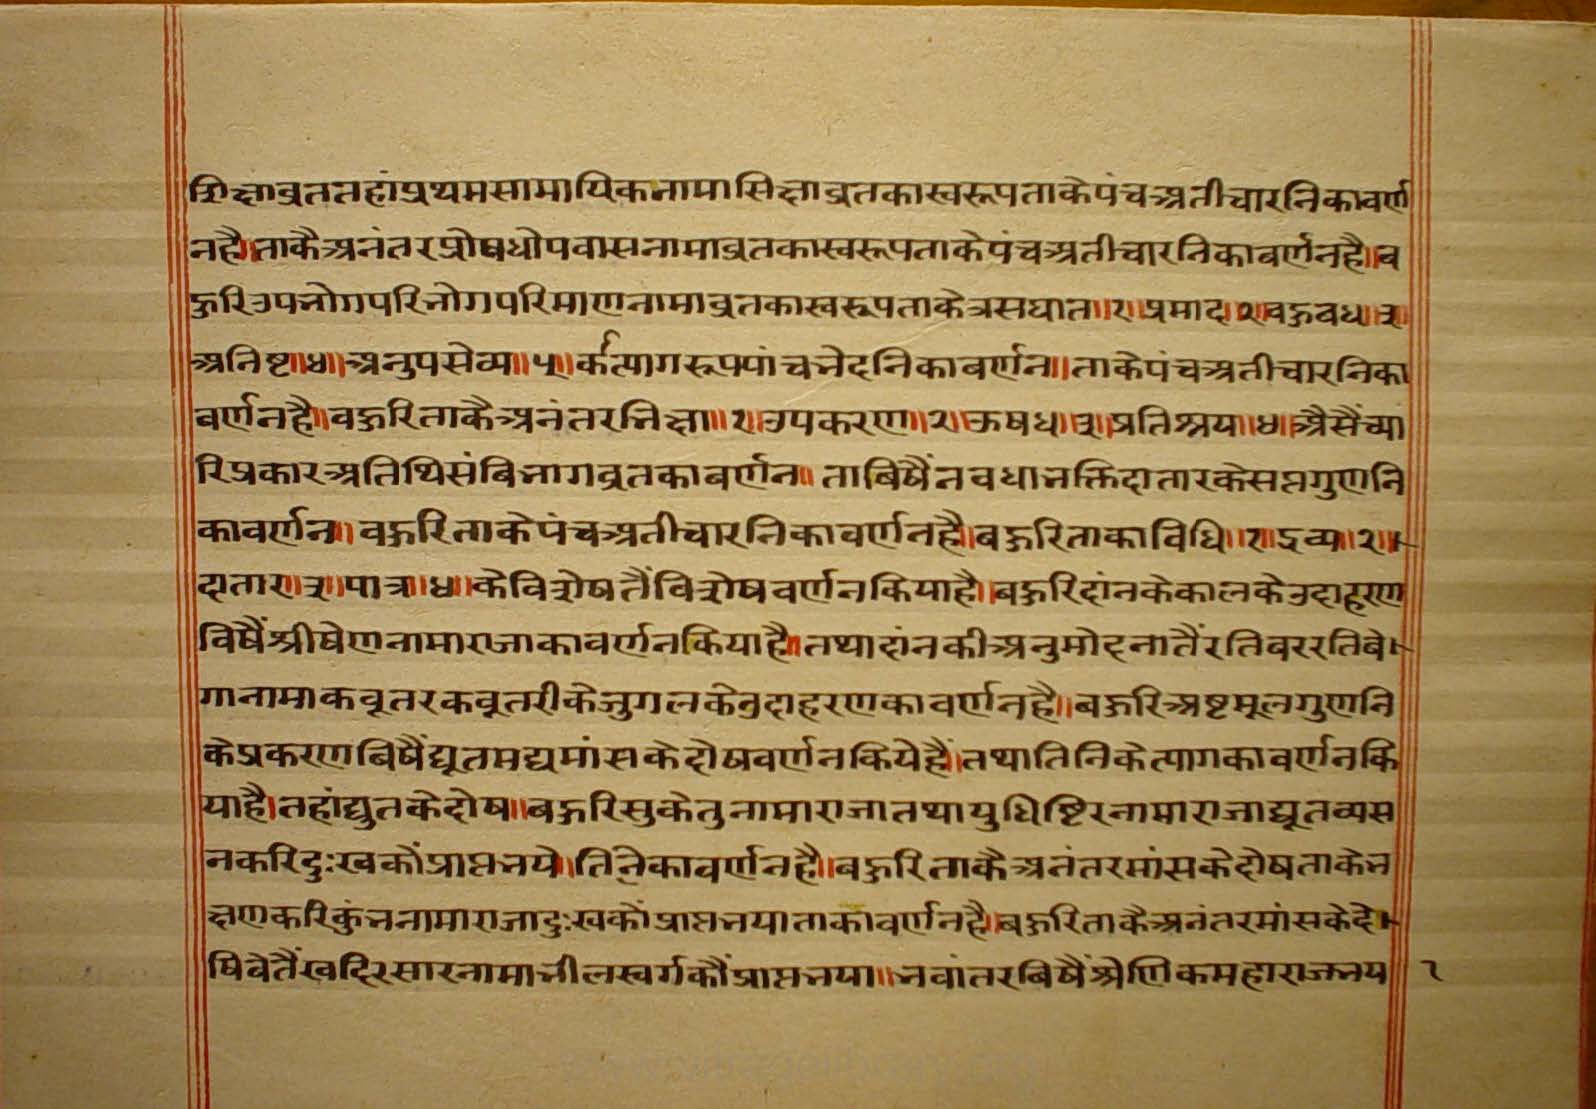 शिक्षाव्रततहांप्रथमसामायिकनामासिक्षाव्रतकास्वरूपताकेपंचअतीचारनिकावर्ण
नहै॥ताकैअनंतरप्रोषधोपवासनामाव्रतकास्वरूपताकेपंचअतीचारनिकाबर्णनहै॥ब
हुरिउपभोगपरिभोगपरिमाणनामाव्रतकास्वरूपताकेत्रसघात॥१॥प्रमाद॥२॥बहुबध॥३॥
अनिष्ट॥४॥अनुपसेव्य॥५॥केत्यागरूपपांचभेदनिकाबर्णन॥ताकेपंचअतीचारनिका
बर्णनहै॥बहुरिताकैअनंतरभिक्षा॥१॥उपकरण॥२॥ऊषध॥३॥प्रतिश्रय॥४॥अैसैंच्या
रिप्रकारअतिथिसंबिभागव्रतकाबर्णन॥ताबिषैंनवधाभक्तिदातारकेसप्तगुणनि
कावर्णन॥बहुरिताकेपंचअतीचारनिकावर्णनहै॥बहुरिताकाविधि॥१॥द्रव्य॥२॥
दातार॥३॥पात्र॥४॥केविशेषतैंविशेषवर्णनकियाहै॥बहुरिदांनकेकालकेउदाहरण
विषैंश्रीषेणनामाराजाकावर्णनकियाहै॥तथादांनकीअनुमोदनातैंरतिबररतिबे
गानामाकबूतरकबूतरीकेजुगलकेउदाहरणकावर्णनहै॥बहुरिअष्टमूलगुणनि
केप्रकरणबिषैंद्यूतमद्यमांसकेदोषवर्णनकियेहैं॥तथातिनिकेत्यागकावर्णनकि
याहै॥तहांद्युतकेदोष॥बहुरिसुकेतुनामाराजातथायुधिष्टिरनामाराजाद्यूतव्यस
नकरिदुःखकौंप्राप्तभये॥तिनेकावर्णनहै॥बहुरिताकैअनंतरमांसकेदोषताकेभ
क्षणकरिकुंभनामाराजादुःखकौंप्राप्तभयाताकावर्णनहै॥बहुरिताकैअनंतरमांसकेदे
षिवेतैंखदिरसारनामाभीलस्वर्गकौंप्राप्तभया॥भवांतरबिषैंश्रेणिकमहाराजभय १